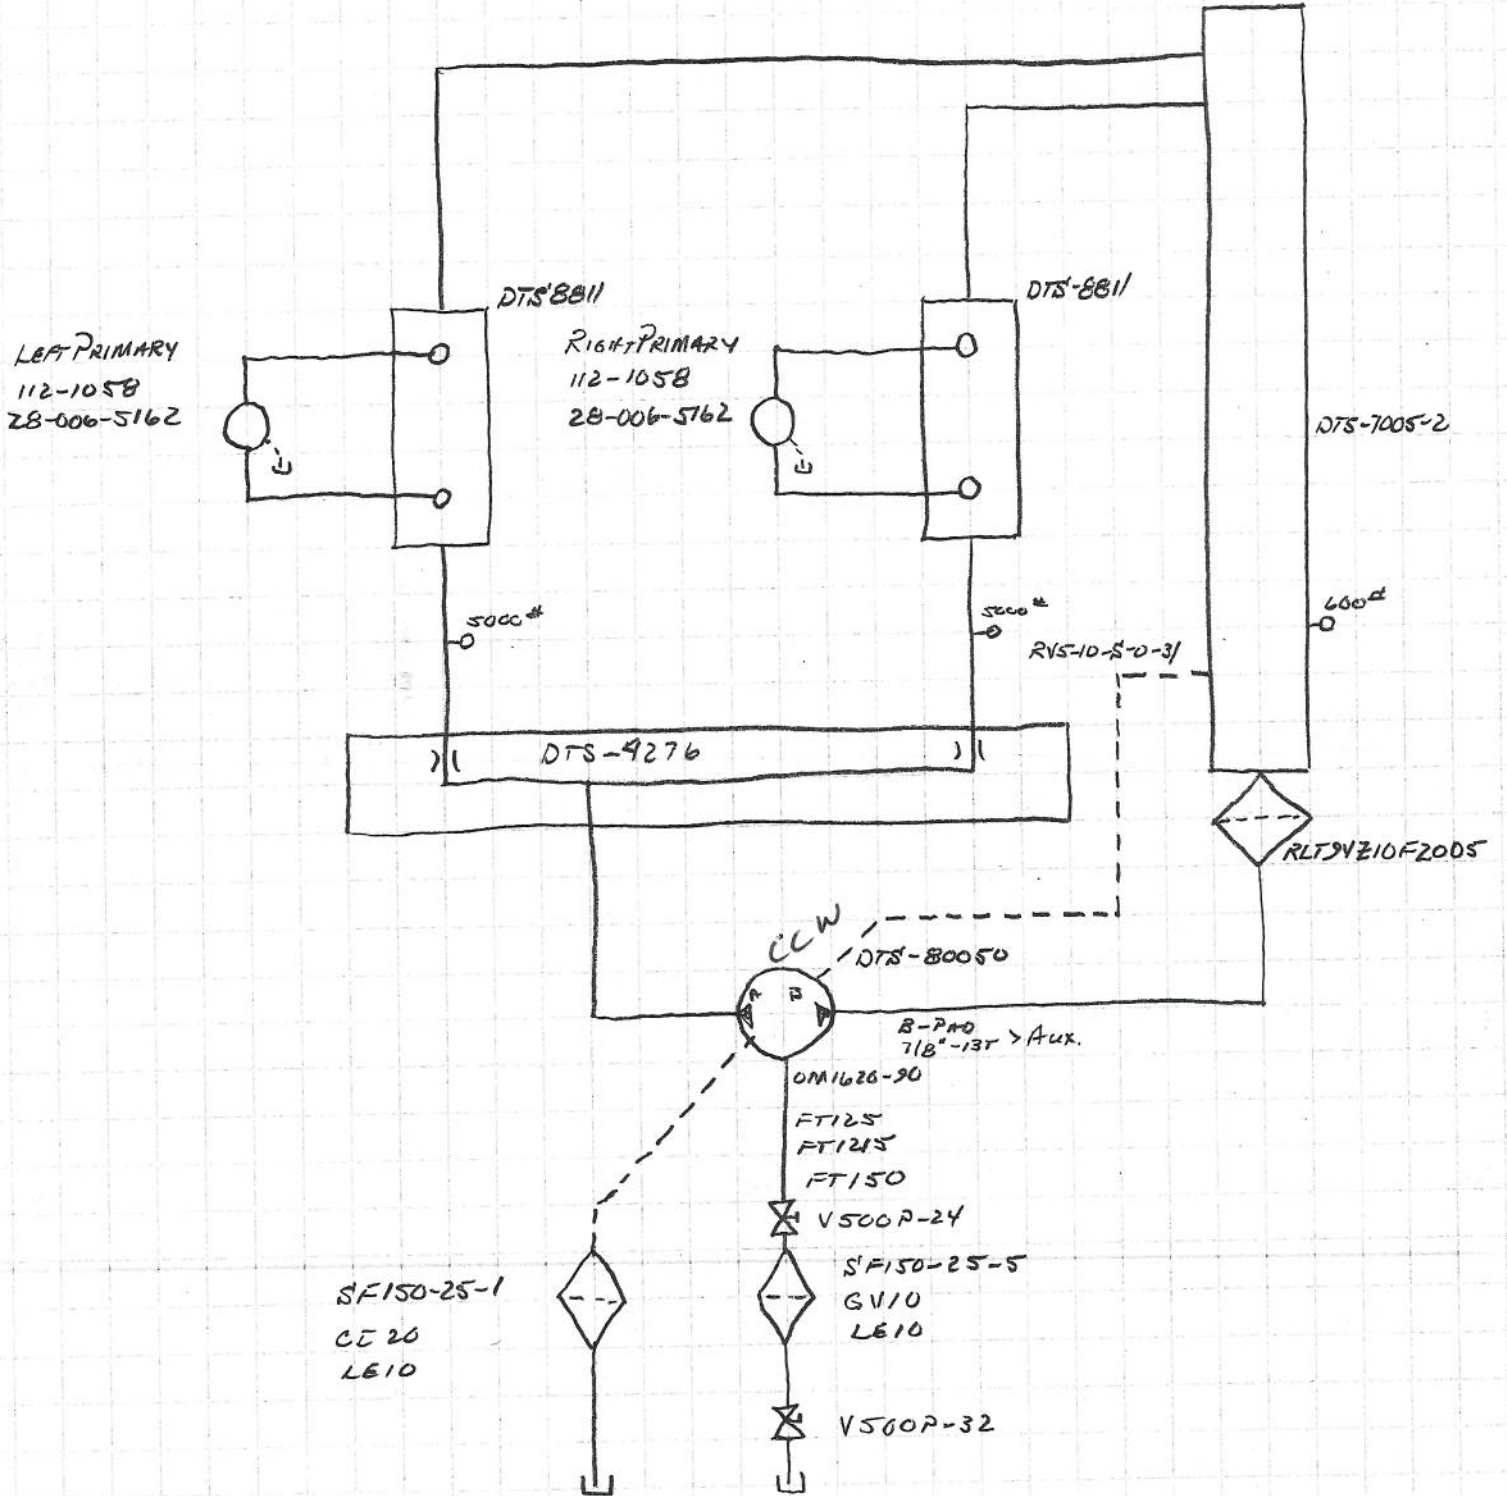 DTS-8811
DTS-8811
LEFT PRIMARY
112-1058
28-006-5162
RIGHT PRIMARY
112-1058
28-006-5162
DTS-7005-2
5000#
5000#
600#
RV5-10-S-0-31
DTS-4276
RLT9VZ10F2005
CCW
DTS-80050
A
B
B-PAD
7/8"-13T > Aux.
OM1620-90
FT125
FT1215
FT150
V500P-24
SF150-25-1
CI 20
LE10
SF150-25-5
GV10
LE10
V500P-32